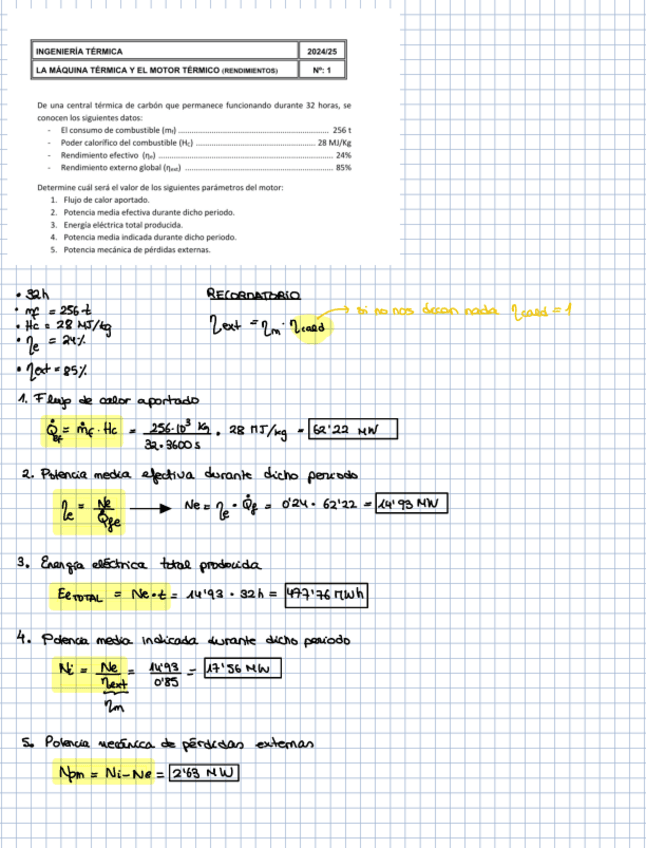 INGENIERÍA TÉRMICA 2024/25
LA MÁQUINA TÉRMICA Y EL MOTOR TÉRMICO (RENDIMIENTOS) Nº: 1
De una central térmica de carbón que permanece funcionando durante 32 horas, se
conocen los siguientes datos:
- El consumo de combustible (mf) ........ 256 t
- Poder calorífico del combustible (Hc) ........ 28 MJ/Kg
- Rendimiento efectivo (ηe) ........ 24%
- Rendimiento externo global (ηext) ........ 85%
Determine cuál será el valor de los siguientes parámetros del motor:
1. Flujo de calor aportado.
2. Potencia media efectiva durante dicho periodo.
3. Energía eléctrica total producida.
4. Potencia media indicada durante dicho periodo.
5. Potencia mecánica de pérdidas externas.
• 32h
• mf = 256 t
• Hc = 28 MJ/kg
• ηe = 24%
• ηext = 85%
RECORDATORIO
ηext = ηm · ηcald → si no nos dicen nada ηcald = 1
1. Flujo de calor aportado
Q̇ef = ṁf · Hc = 256·10³ kg / 32·3600 s · 28 MJ/kg = 62'22 MW
2. Potencia media efectiva durante dicho periodo
ηe = Ne / Q̇fe → Ne = ηe · Q̇f = 0'24 · 62'22 = 14'93 MW
3. Energía eléctrica total producida
EeTOTAL = Ne·t = 14'93 · 32h = 477'76 MWh
4. Potencia media indicada durante dicho periodo
Ni = Ne / ηext = 14'93 / 0'85 = 17'56 MW
ηm
5. Potencia mecánica de pérdidas externas
Npm = Ni - Ne = 2'63 MW